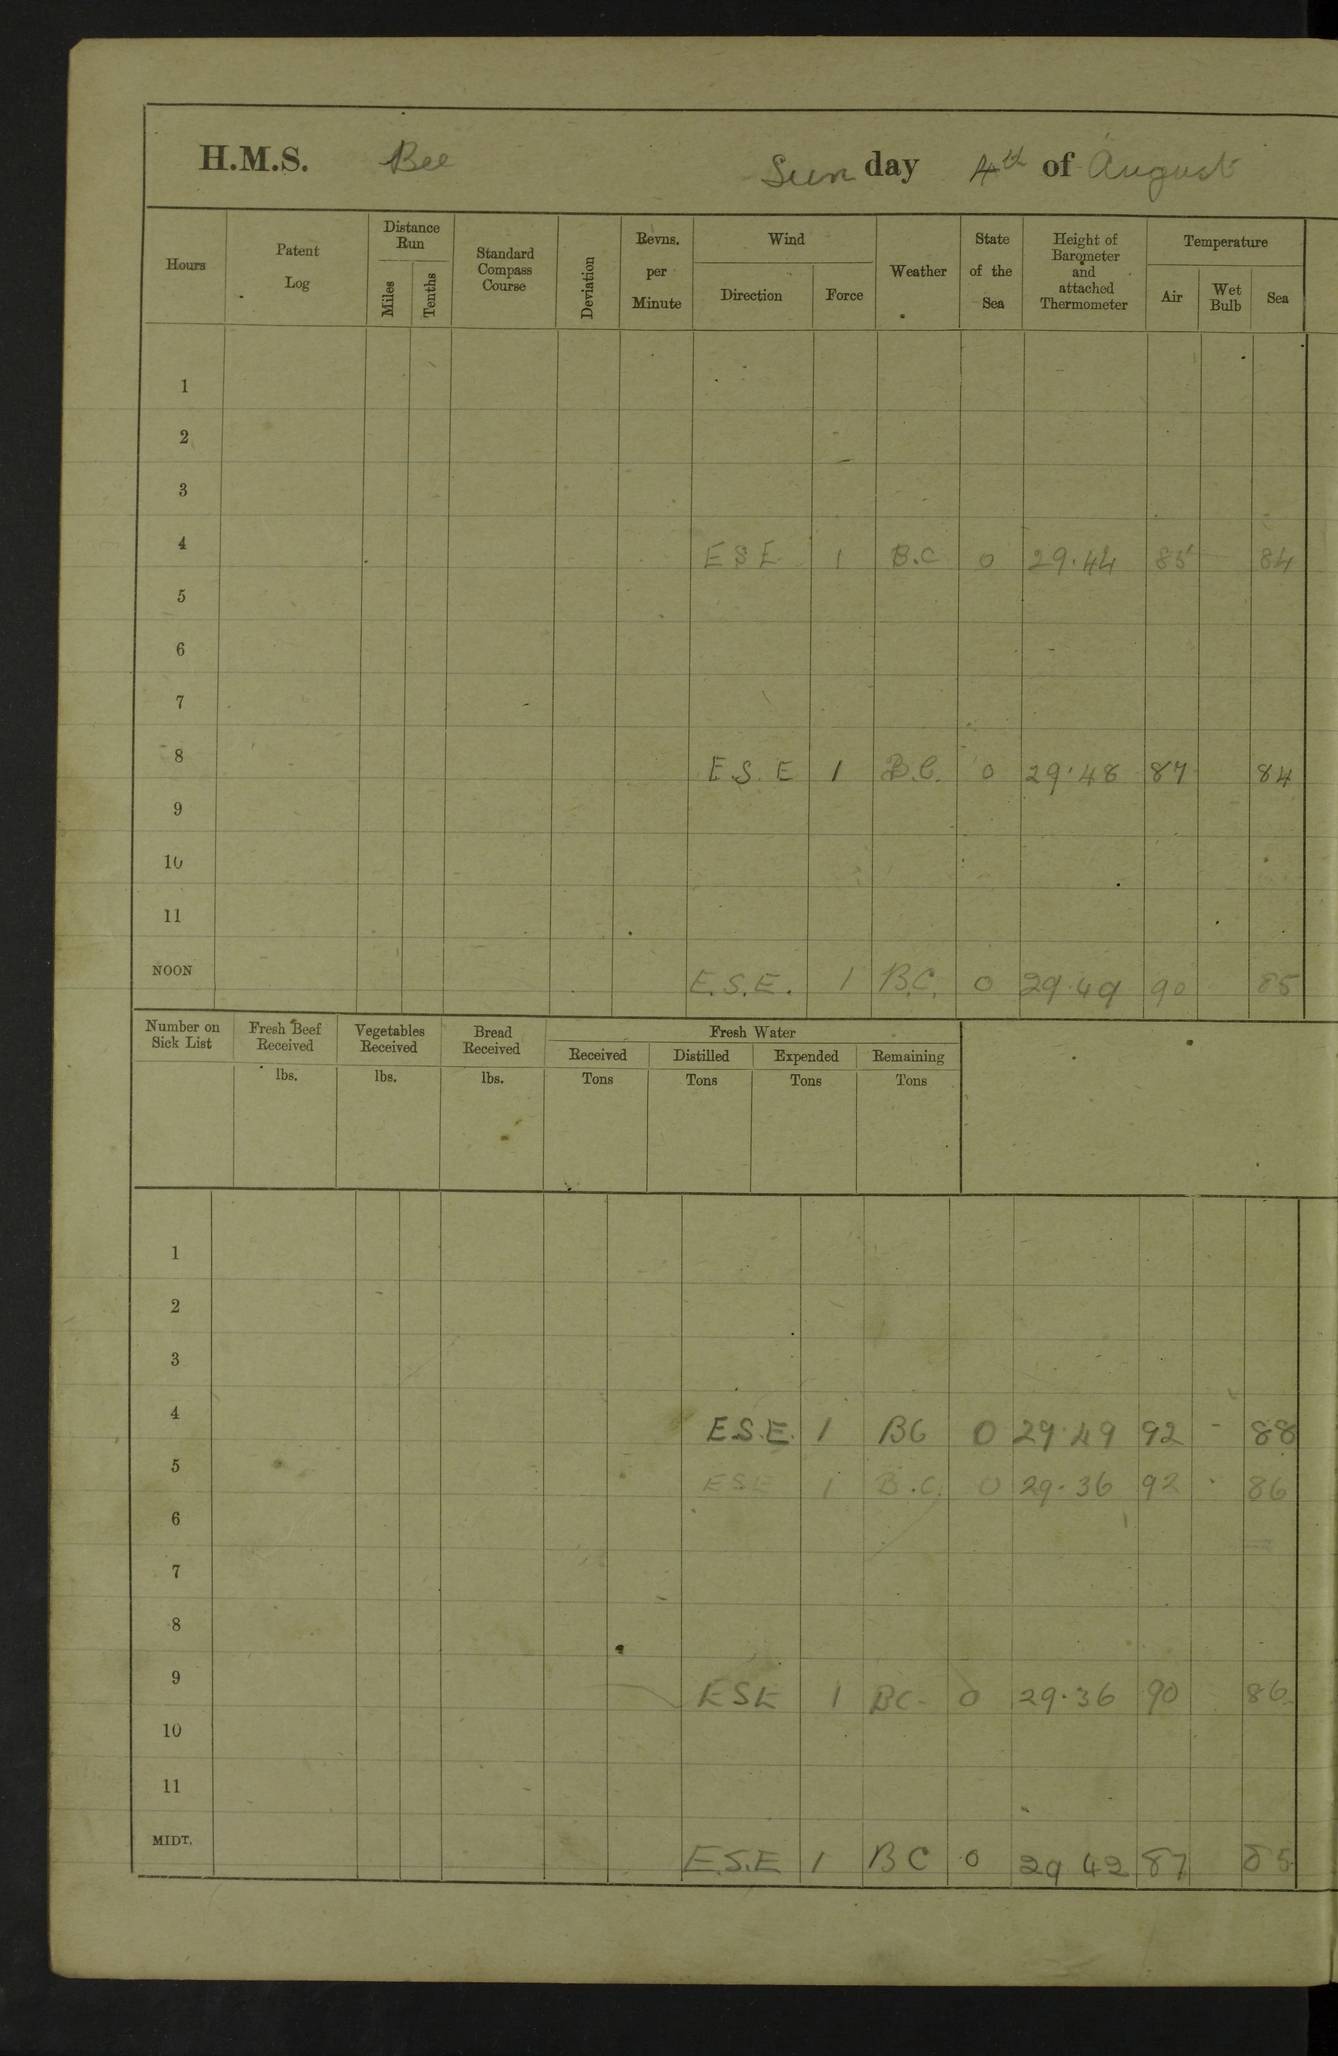 H.M.S. Bee Sunday 4th of August
Hours Patent Log Distance Run Miles Tenths Standard Compass Course Deviation Revns. per Minute Wind Direction Force Weather State of the Sea Height of Barometer and attached Thermometer Temperature Air Wet Bulb Sea
1
2
3
4 E S E 1 B.C 0 29.44 85 84
5
6
7
8 E.S.E 1 B.C. 0 29.48 87 84
9
10
11
NOON E.S.E. 1 B.C. 0 29.49 90 85
Number on Sick List Fresh Beef Received Vegetables Received Bread Received Fresh Water
Received Distilled Expended Remaining
lbs. lbs. lbs. Tons Tons Tons Tons
1
2
3
4 E.S.E. 1 BC 0 29.49 92 - 88
5 ESE 1 B.C. 0 29.36 92 86
6
7
8
9 ESE 1 BC- 0 29.36 90 86
10
11
MIDT. E.S.E 1 BC 0 29 42 87 85